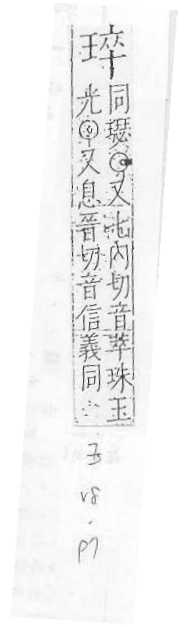 琗
同瑟又此內切音萃珠玉
光又息晉切音信義同
五
v8.
p7